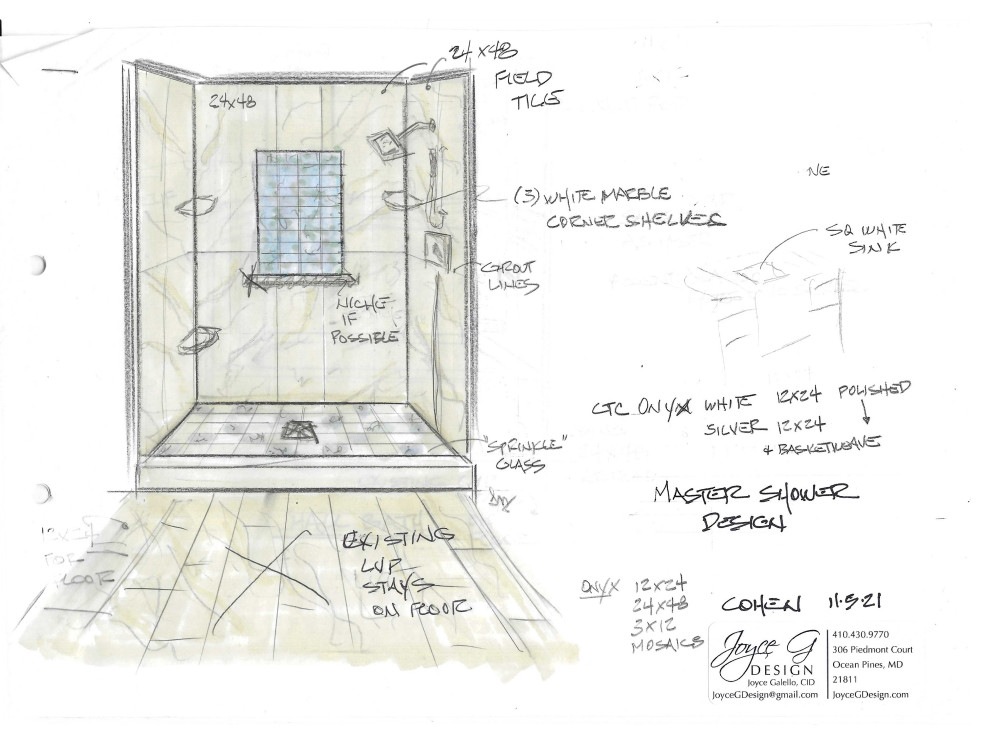 24x48
FIELD
TILE
24x48
NE
(3) WHITE MARBLE
CORNER SHELVES
SQ WHITE
SINK
GROUT
LINES
NICHE
IF
POSSIBLE
CTC ONYX WHITE 12x24 POLISHED
SILVER 12x24
& BASKETWEAVE
"SPRINKLE"
GLASS
MASTER SHOWER
DESIGN
EXISTING
LVP
STAYS
ON FLOOR
FOR
FLOOR
ONYX 12x24
24x48
3x12
MOSAICS
COHEN 11·5·21
Joyce G
DESIGN
Joyce Galello, CID
JoyceGDesign@gmail.com
410.430.9770
306 Piedmont Court
Ocean Pines, MD
21811
JoyceGDesign.com